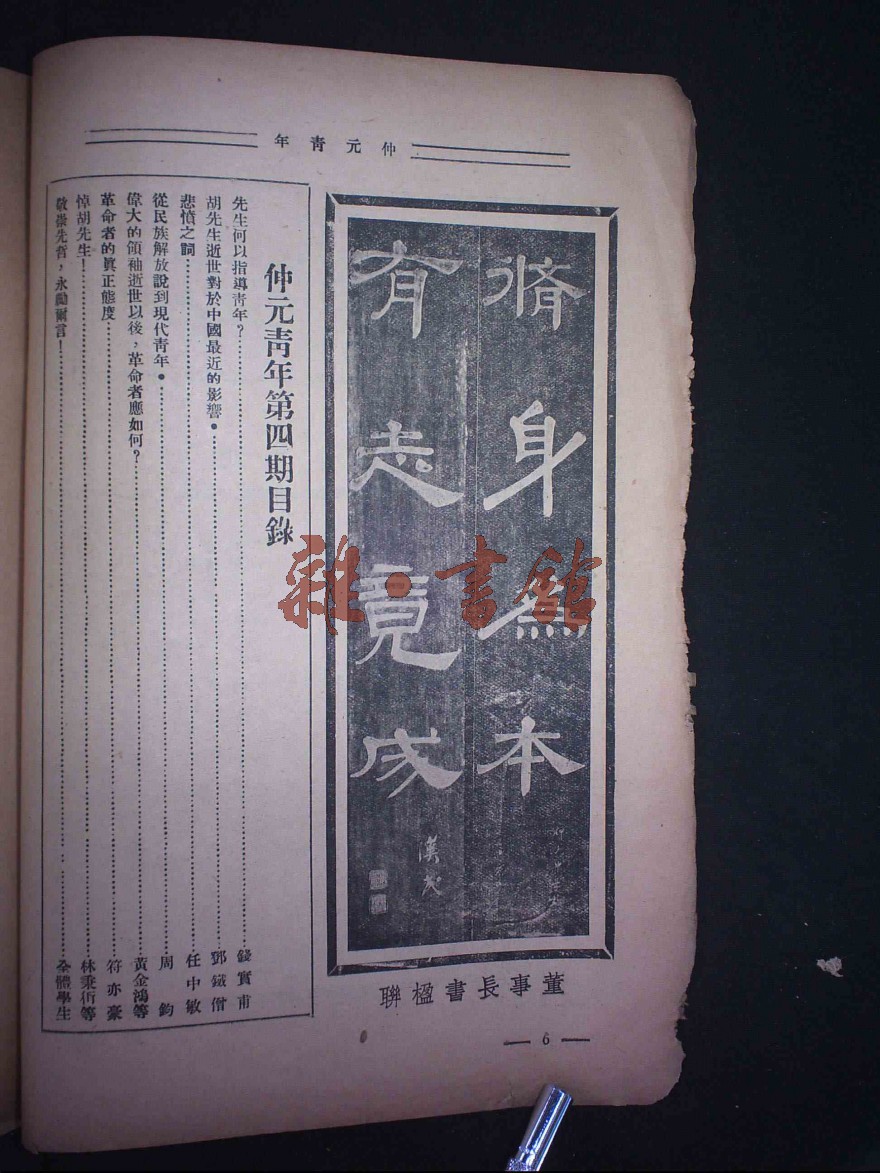 仲元靑年
脩身為本
有志竟成
漢民
董事長書楹聯
仲元靑年第四期目錄
先生何以指導靑年？……錢實甫
胡先生逝世對於中國最近的影響……鄧鐵僧
悲憤之詞……任中敏
從民族解放說到現代靑年……周鈞
偉大的領袖逝世以後，革命者應如何？……黃金鴻等
革命者的眞正態度……符亦豪
悼胡先生！……林秉衎等
敬崇先哲，永勵爾言！……全體學生
— 6 —
雜·書館